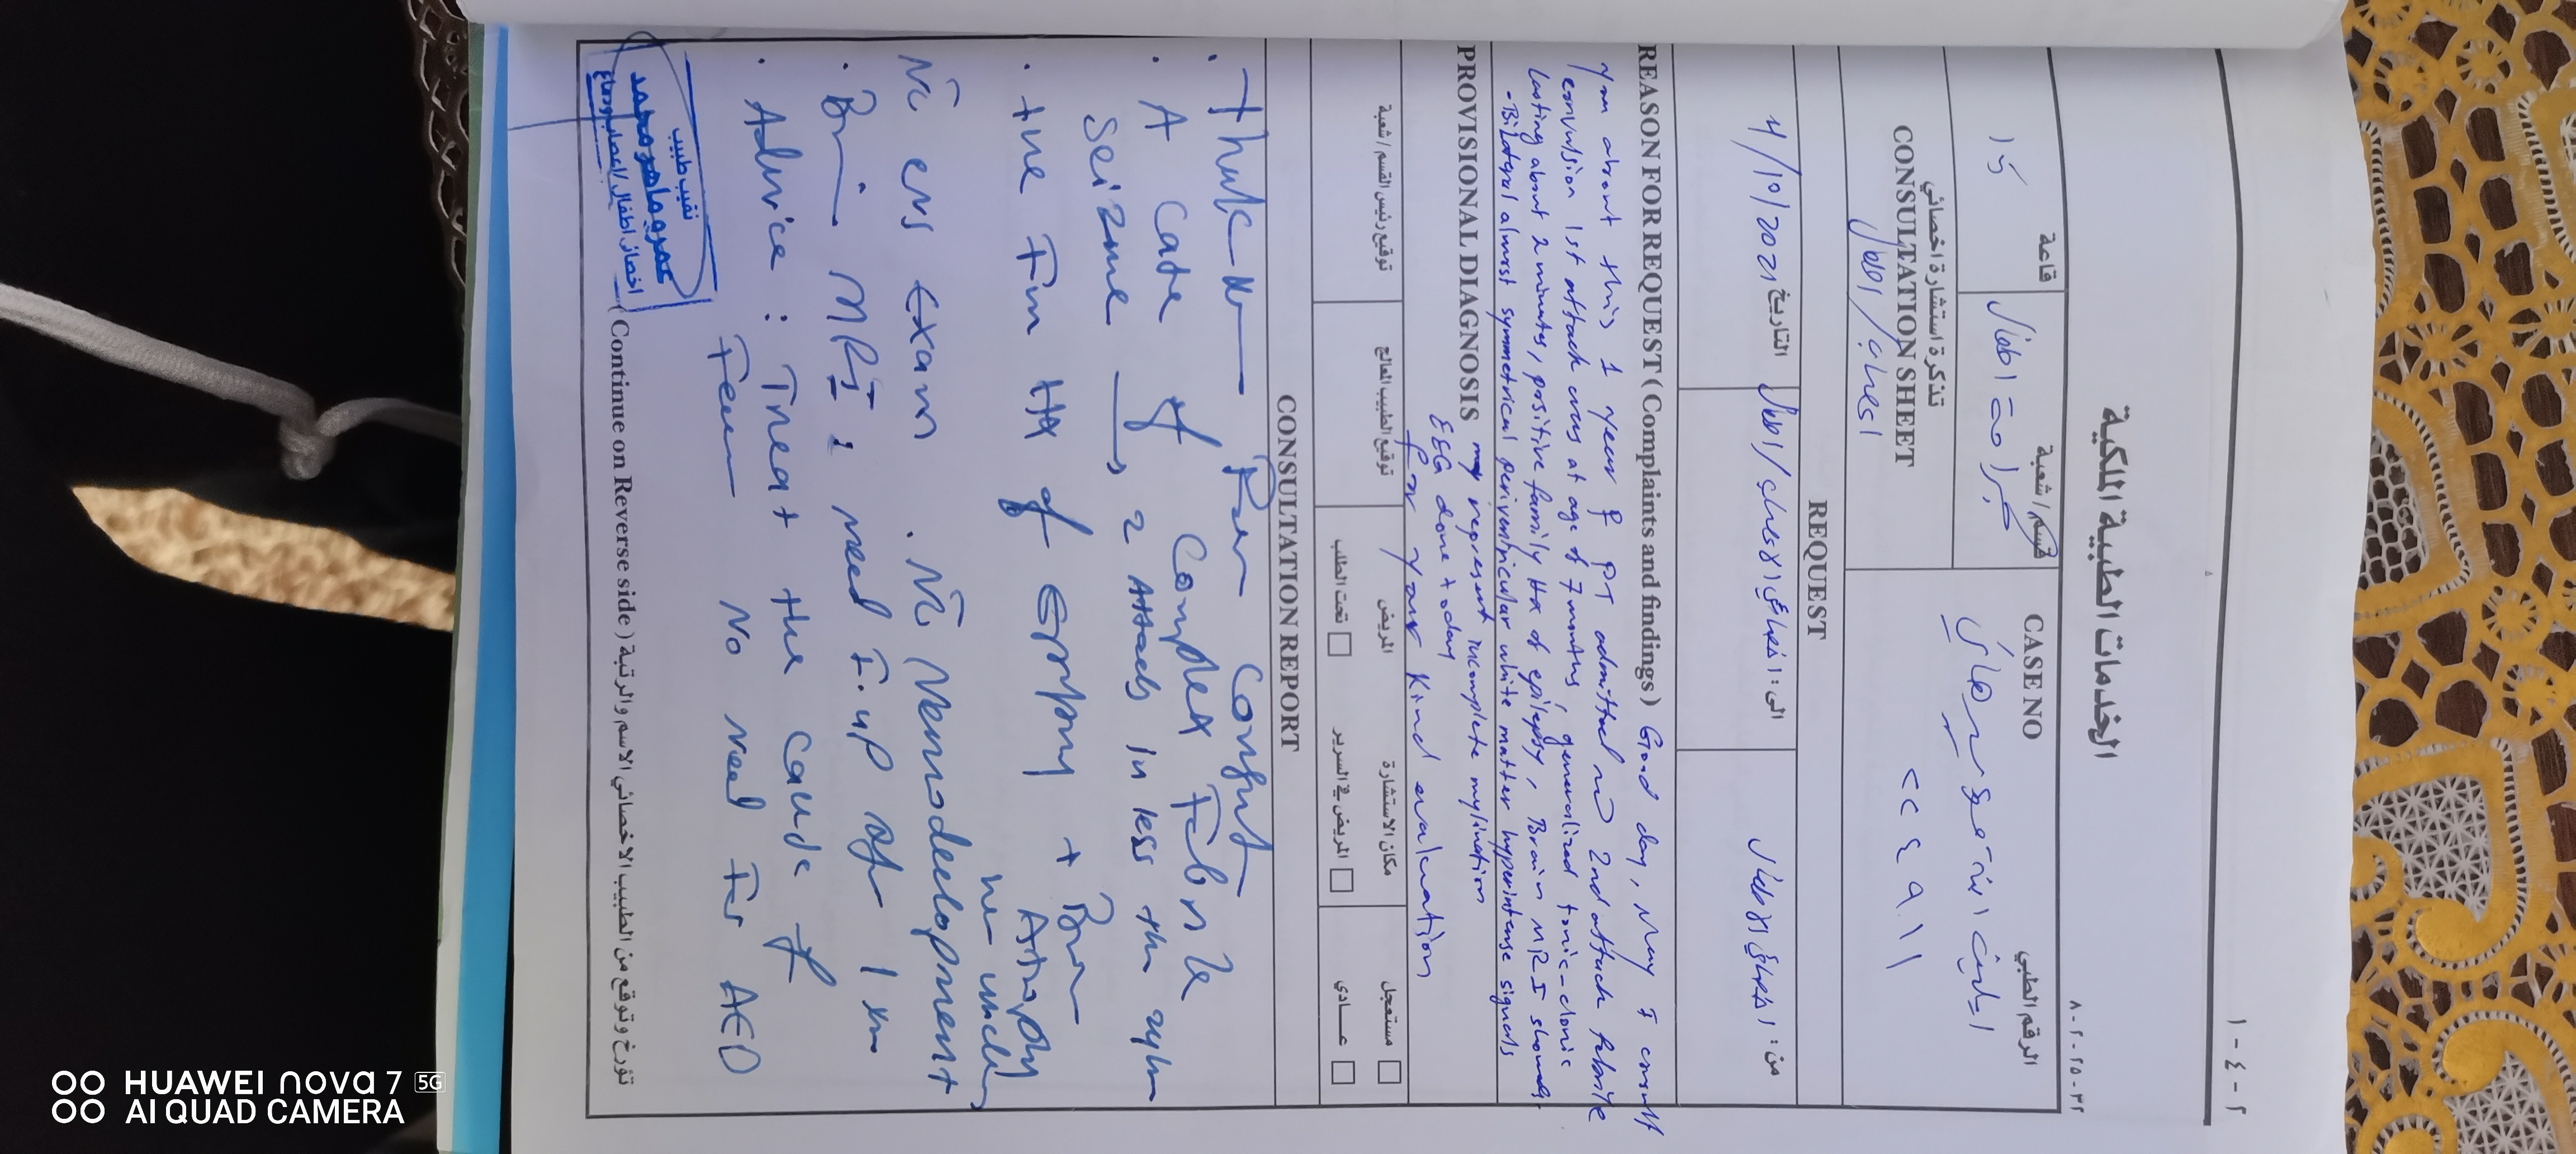 ١ - ٤ - ٢
٣٢ - ٢٥ - ٢ - ٨
الخدمات الطبية الملكية
قاعة
قسم / شعبة
CASE NO
الرقم الطبي
اطفال
تذكرة استشارة اخصائي
CONSULTATION SHEET
اعصاب / اطفال
REQUEST
4/10/2021 التاريخ
الى : اخصائي الاعصاب / اطفال
من : اخصائي الاطفال
REASON FOR REQUEST ( Complaints and findings ) Good day, May I consult
you about this 1 year ♀ PT admitted 2nd attack febrile
convulsion 1st attack was at age of 7 months, generalized tonic-clonic
lasting about 2 minutes, positive family Hx of epilepsy, Brain MRI showed
- Bilateral almost symmetrical periventricular white matter hyperintense signals
PROVISIONAL DIAGNOSIS may represent incomplete mylination
EEG done today
for your kind evaluation
توقيع رئيس القسم / شعبة
توقيع الطبيب المعالج
المريض
مكان الاستشارة
مستعجل
تحت الطلب
المريض في السرير
عــادي
CONSULTATION REPORT
. Thank for Consult
. A Case of Complex Febrile
Seizure 2 Attacks in less
. +ve Fm HX of Epilepsy +
Atrophy
her uncle
CNS Exam . Neurodevelopment
. MRI : need F.up
. Advice : Treat the cause of
Fever No need For AED
نقيب طبيب
عمرو ماهر محمد
اخصائي اطفال / اعصاب
( Continue on Reverse side ) تؤرخ وتوقع من الطبيب الاخصائي الاسم والرتبة
HUAWEI nova 7 5G
AI QUAD CAMERA